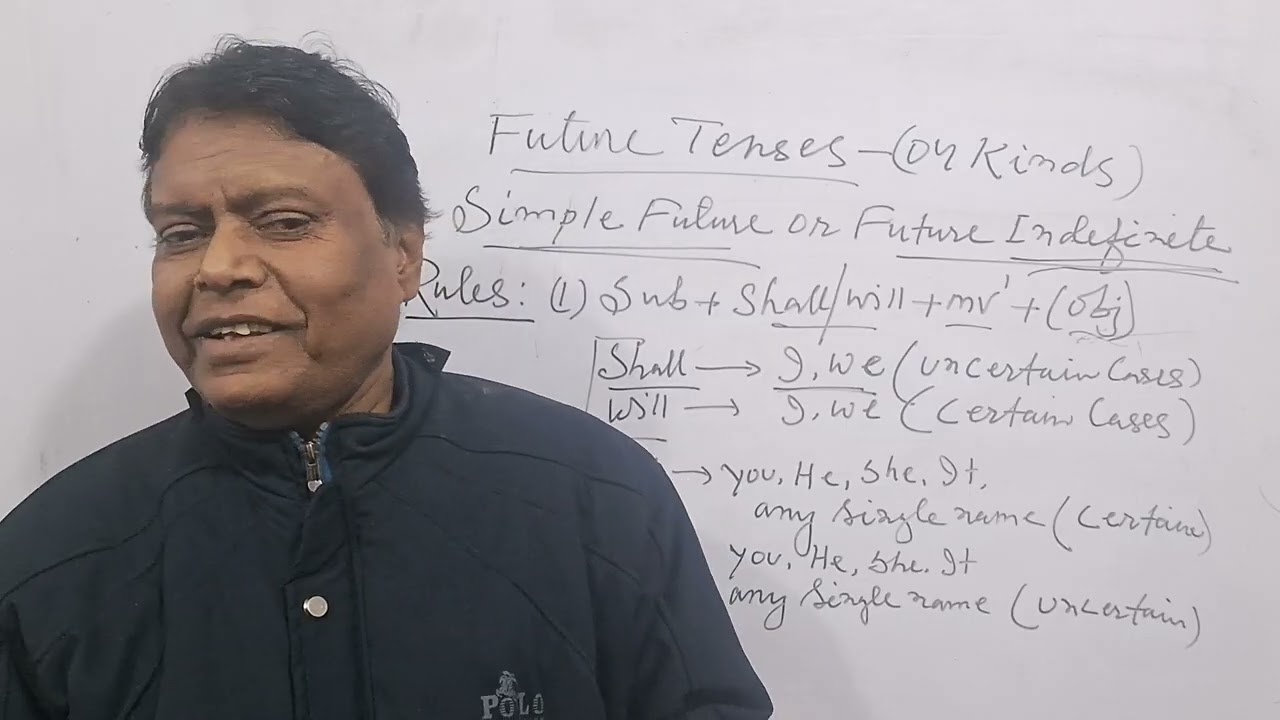 Future Tenses - (04 Kinds)
Simple Future or Future Indefinite
Rules: (1) Sub + Shall/will + mv¹ + (Obj)
Shall → I, we (uncertain Cases)
Will → I, we (Certain Cases)
→ you, He, She, It,
any single name (Certain)
you, He, she. It
any single name (uncertain)
POLO